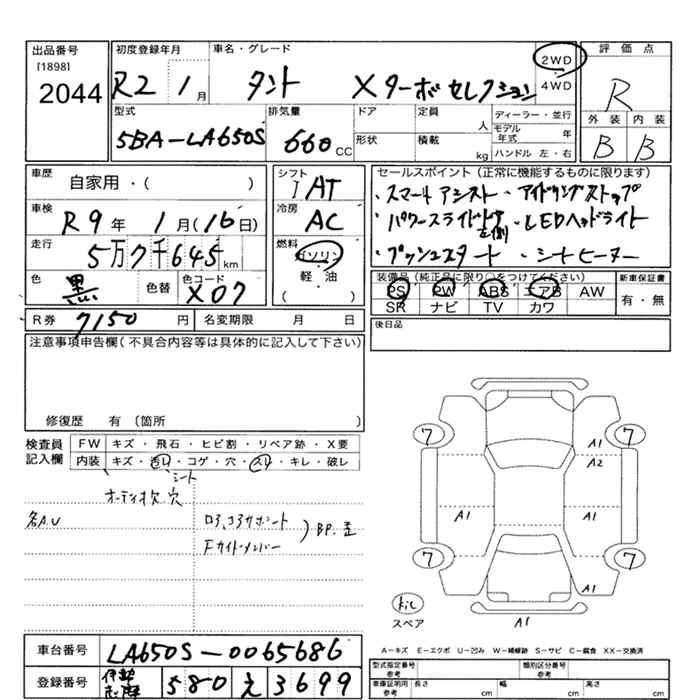 出品番号 初度登録年月 車名・グレード 評価点
[1898] 2WD
2044 R2 1月 タント Xターボセレクション 4WD R
型式 排気量 ドア 定員 ディーラー・並行 外装 内装
人 モデル年式 年
5BA-LA650S 660CC 形状 積載 kg ハンドル 左・右 B B
車歴 自家用・( ) シフト AT セールスポイント(正常に機能するものに限ります)
・スマートアシスト ・アイドリングストップ
車検 R9年 1月(16日) 冷房 AC ・パワースライドドア左側 ・LEDヘッドライト
走行 5万7千645km 燃料 ガソリン ・プッシュスタート ・シートヒーター
軽・油
色 黒 色替 色コード X07 装備品(純正品に限り○をつけてください) 新車保証書
PS PW ABS エアB AW 有・無
SR ナビ TV カワ
R券 7150円 名変期限 月 日 後日品
注意事項申告欄(不具合内容等は具体的に記入して下さい)
修復歴 有(箇所 )
検査員記入欄 FW キズ・飛石・ヒビ割・リペア跡・X要
内装 キズ・汚れ・コゲ・穴・スレ・キレ・破レ
シート
オーディオ欠 穴
各A.U
ロア、コアサポート
Fサイドメンバー
BP.歪
7 7
A1
A2
A1 A1
7 7
A1
キル
スペア A1
A-キズ E-エクボ U-凹み W-補修跡 S-サビ C-腐食 XX-交換済
車台番号 LA650S-0065686
型式指定番号 参考 類別区分番号 参考
登録番号 伊勢志摩 580 え 3699
車庫証明用 参考 長さ cm 幅 cm 高さ cm